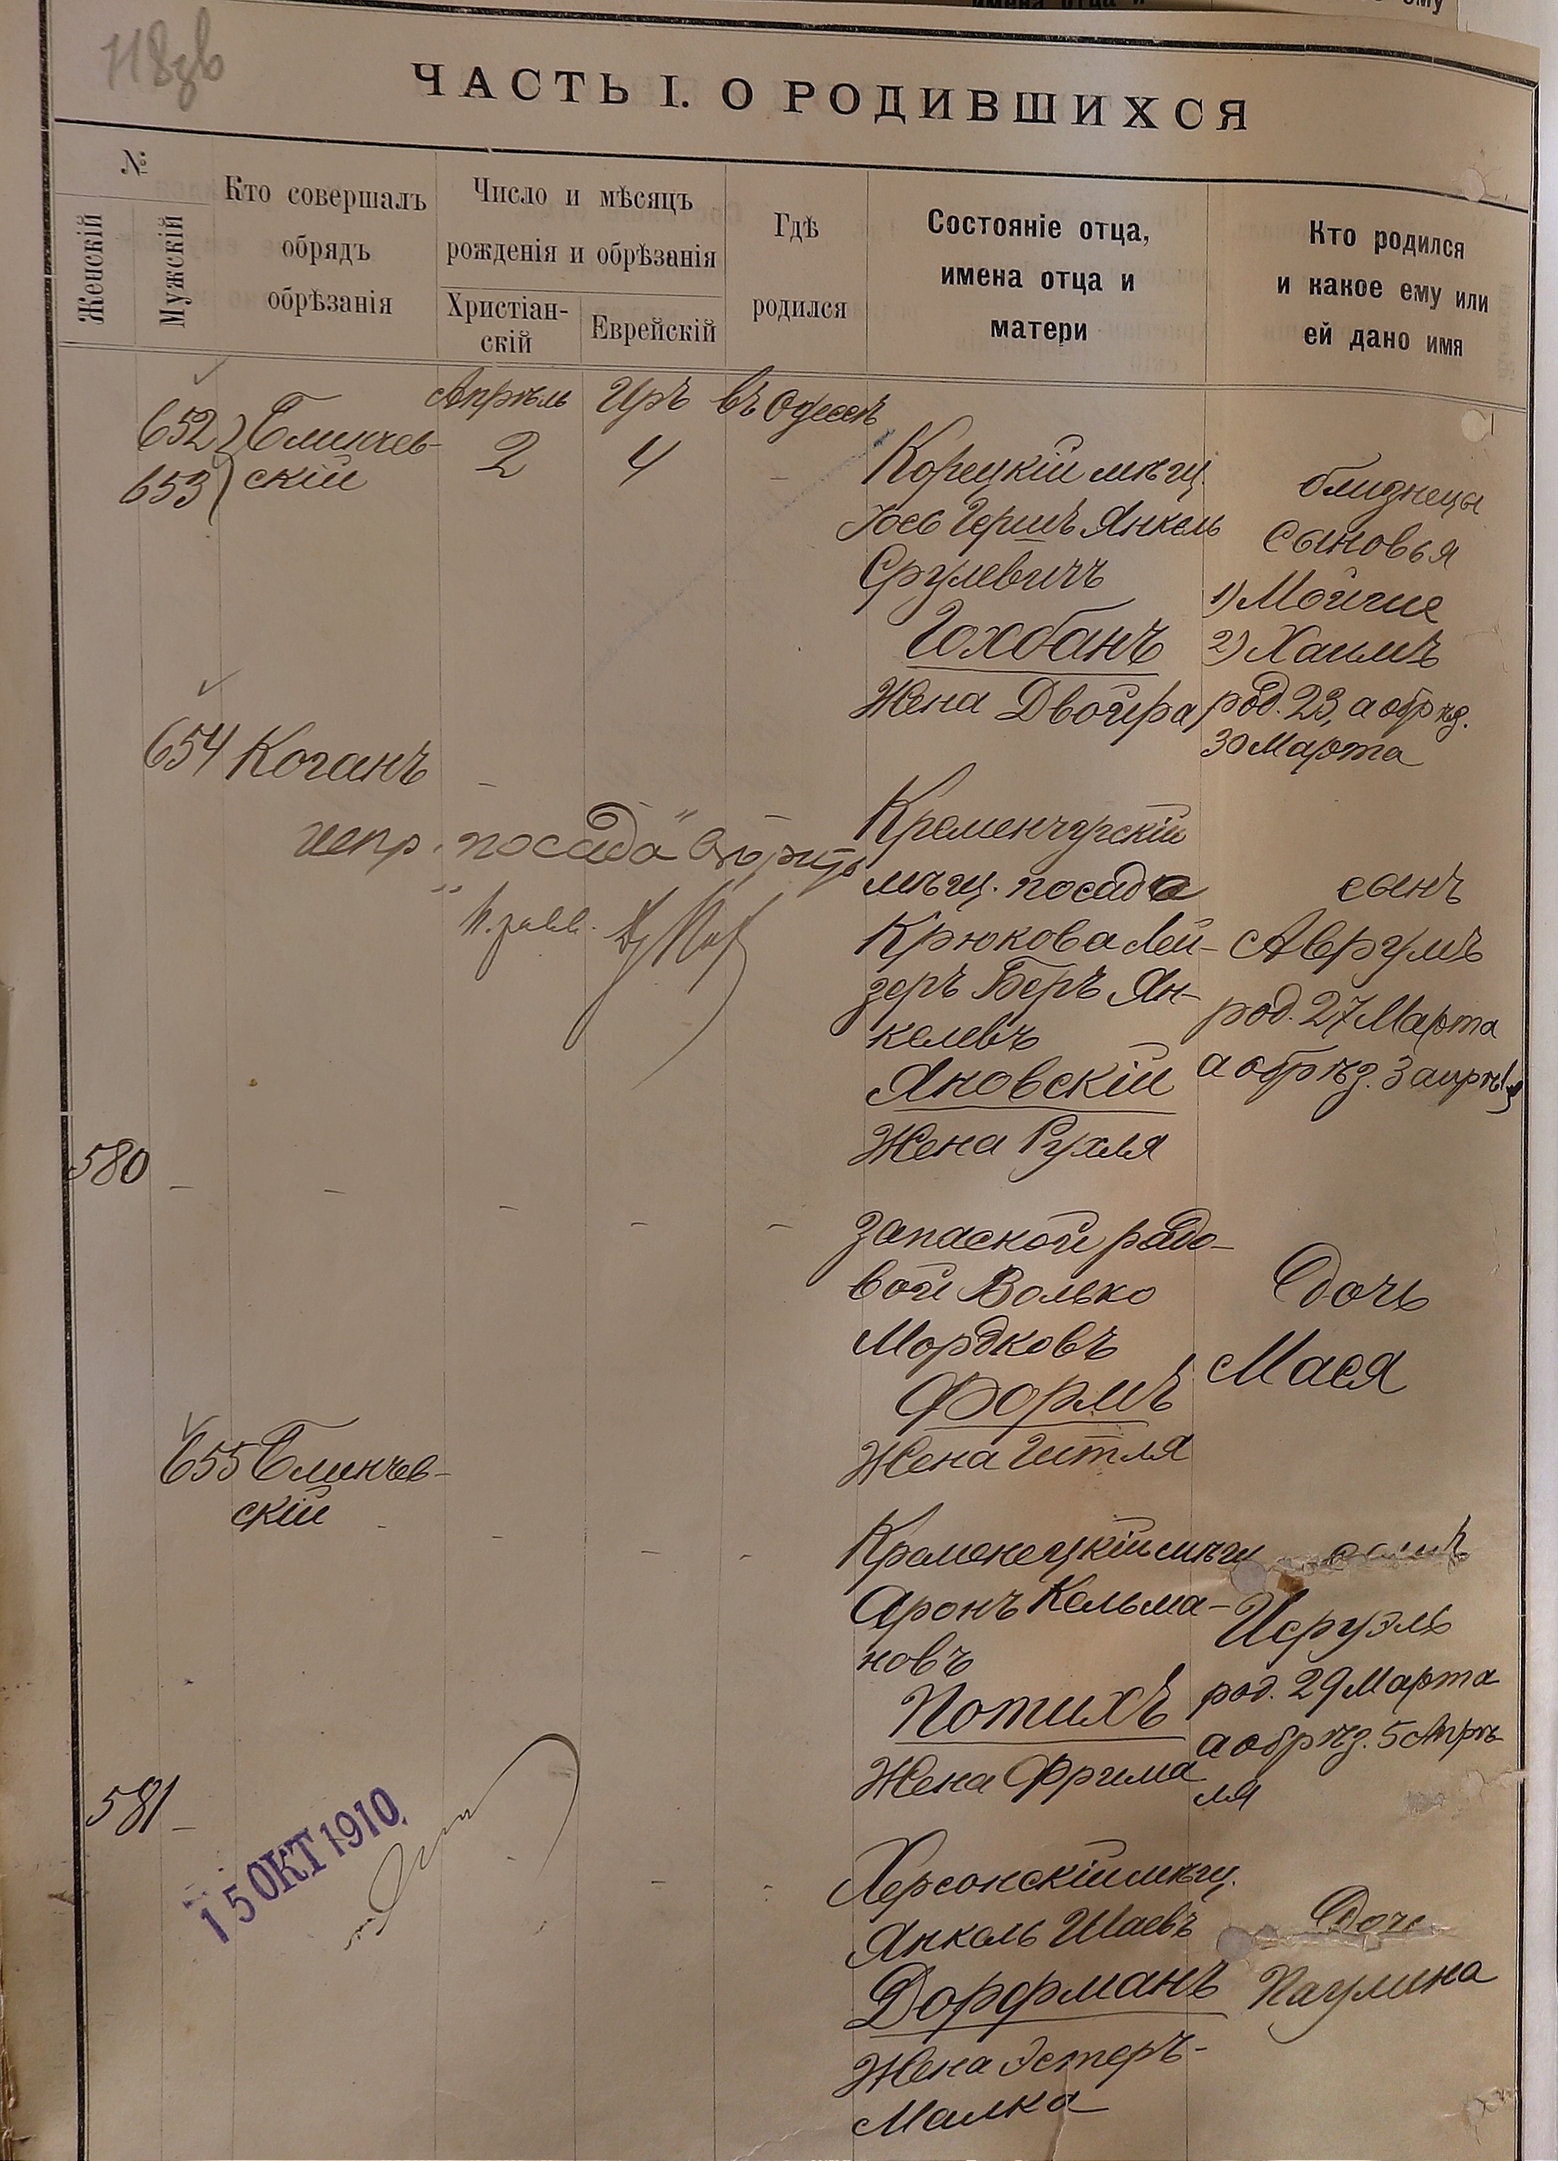 118зв
ЧАСТЬ I. О РОДИВШИХСЯ
№
Женскій
Мужскій
Кто совершалъ
обрядъ
обрѣзанія
Число и мѣсяцъ
рожденія и обрѣзанія
Христіан-
скій
Еврейскій
Гдѣ
родился
Состояніе отца,
имена отца и
матери
Кто родился
и какое ему или
ей дано имя
Апрѣль Иръ въ Одессѣ
652 Блинчев-
653 скій
2 4
Корецкій мѣщ.
Іось Гершъ Янкель
Срулевичъ
Гохбанъ
Жена Двойра
близнецы
сыновья
1) Мойше
2) Хаимъ
род. 23, а обрѣз.
30 Марта
654 Коганъ
испр. „посада"
Кременчугскій
мѣщ. посада
Крюкова Лей-
зеръ Беръ Ян-
келевъ
Яновскій
Жена Рухля
сынъ
Аврумъ
род. 27 Марта
а обрѣз. 3 апрѣля
580
Запасной рядо-
вой Волько
Мордковъ
Формъ
Жена Гитля
Дочь
Мася
655 Блинчев-
скій
Кременецкій мѣщ
Аронъ Кельма-
новъ
Потихъ
Жена Фрима
сынъ
Исруэль
род. 29 Марта
а обрѣз. 5 Апрѣ-
ля
581
15 ОКТ 1910
Херсонскій мѣщ.
Янкель Шаевъ
Дорфманъ
Жена Эстеръ-
Малка
Дочь
Паулина